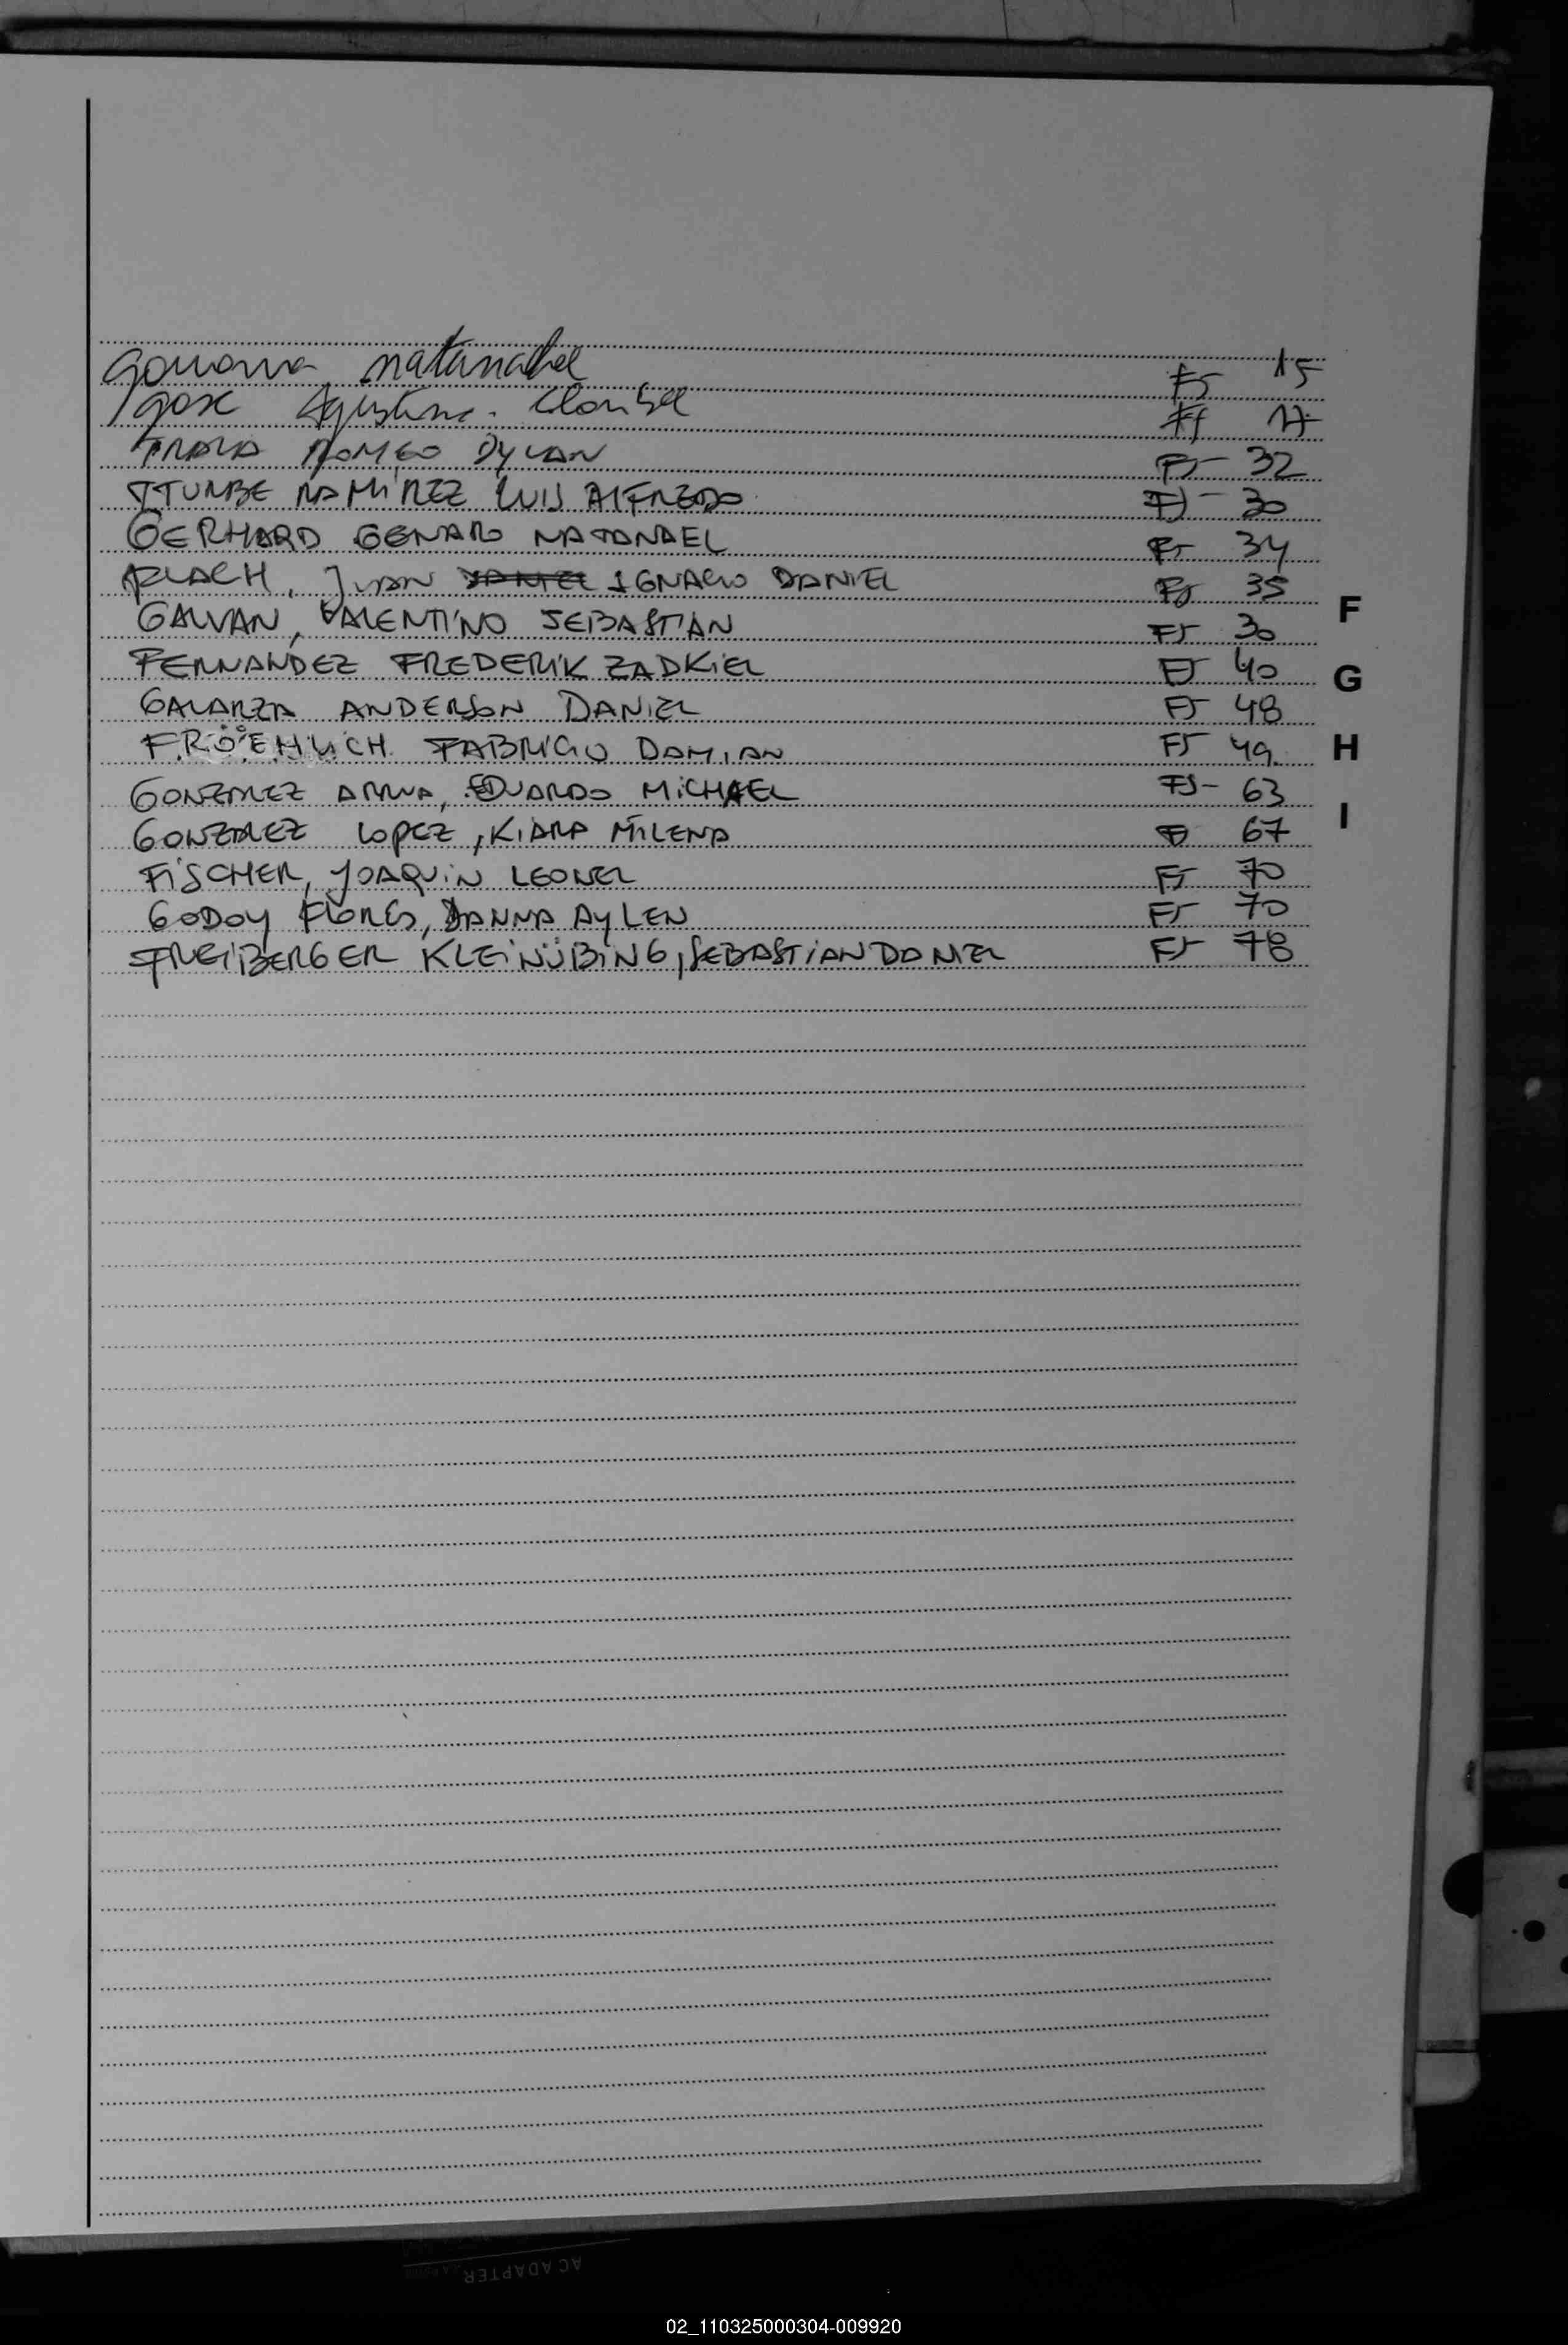 natanahel FJ 15
Jose Agustina. Claribel FJ 17
ROMEO DYLAN FJ- 32
ITURBE RAMIREZ LUIS ALFREDO FJ- 30
GERHARD GENARO NATANAEL FJ 34
FLACH, JUAN DANIEL IGNACIO DANIEL FJ 35
GALVAN, VALENTINO SEBASTIAN FJ 30
FERNANDEZ FREDERIK ZADKIEL FJ 40
GALARZA ANDERSON DANIEL FJ 48
FRÖEHLICH FABRICIO DAMIAN FJ 49
GONZALEZ ARRUA, EDUARDO MICHAEL FJ- 63
GONZALEZ LOPEZ, KIARA MILENA FJ 67
FISCHER, JOAQUIN LEONEL FJ 70
GODOY FLORES, DANNA AYLEN FJ 70
FREIBERGER KLEINÜBING, SEBASTIAN DANIEL FJ 78
F
G
H
I
AC ADAPTER
02_110325000304-009920